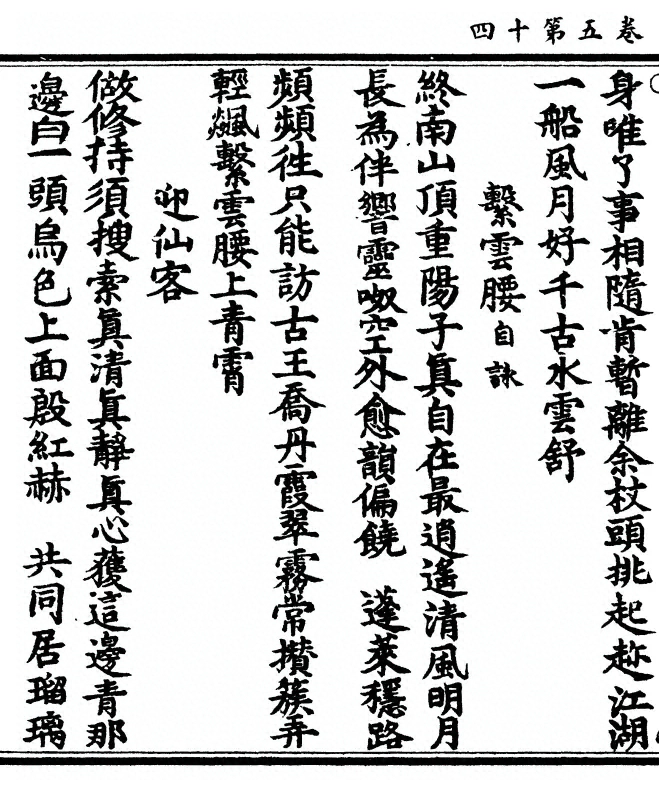 卷五第十四
身唯了事相隨肯暫離余杖頭挑起趂江湖
一船風月好千古水雲舒
繫雲腰自詠
終南山頂重陽子真自在最逍遙清風明月
長為伴響靈呶空外愈韻偏饒　蓬萊穩路
頻頻徃只能訪古王喬丹霞翠霧常攢簇弄
輕飆繫雲腰上青霄
迎仙客
做修持須搜索真清真靜真心獲這邊青那
邊白一頭烏色上面殷紅赫　共同居瑠璃